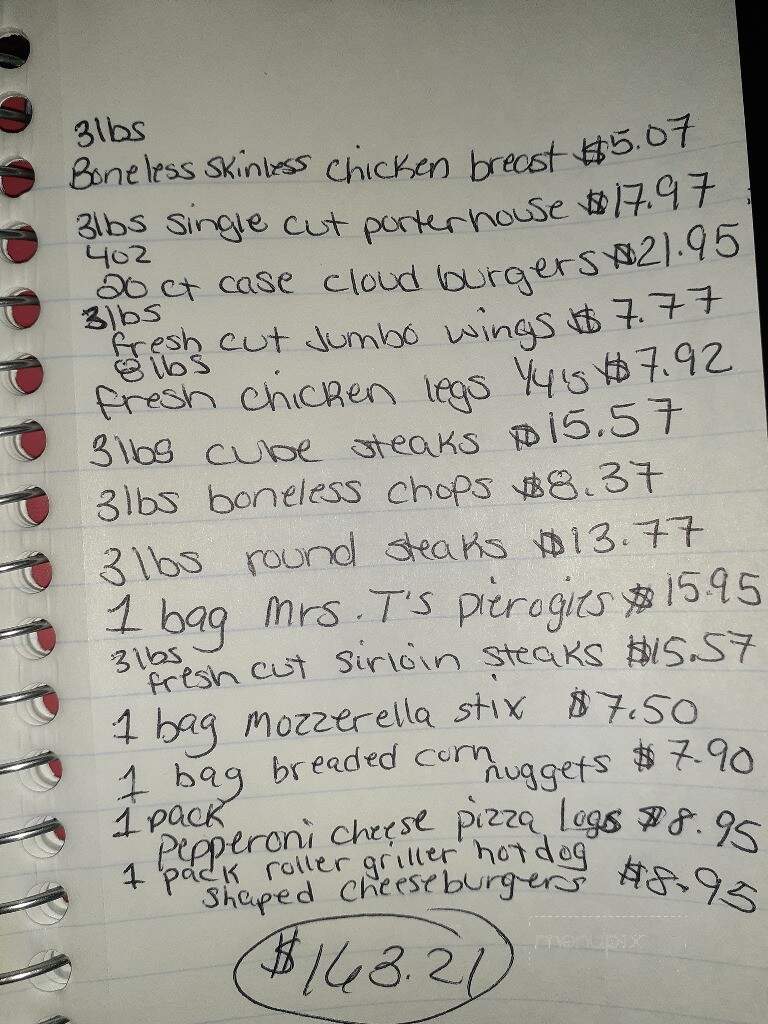 3lbs
Boneless skinless chicken breast $5.07
3lbs single cut porterhouse $17.97
4oz
20 ct case cloud burgers $21.95
3lbs
fresh cut Jumbo wings $7.77
8lbs
fresh chicken legs 1/4's $7.92
3lbs cube steaks $15.57
3lbs boneless chops $8.37
3lbs round steaks $13.77
1 bag Mrs. T's pierogies $15.95
3lbs
fresh cut sirloin steaks $15.57
1 bag mozzerella stix $7.50
1 bag breaded corn
nuggets $7.90
1 pack
Pepperoni cheese pizza logs $8.95
1 pack roller griller hotdog
shaped cheeseburgers $8.95
$163.21
menupix